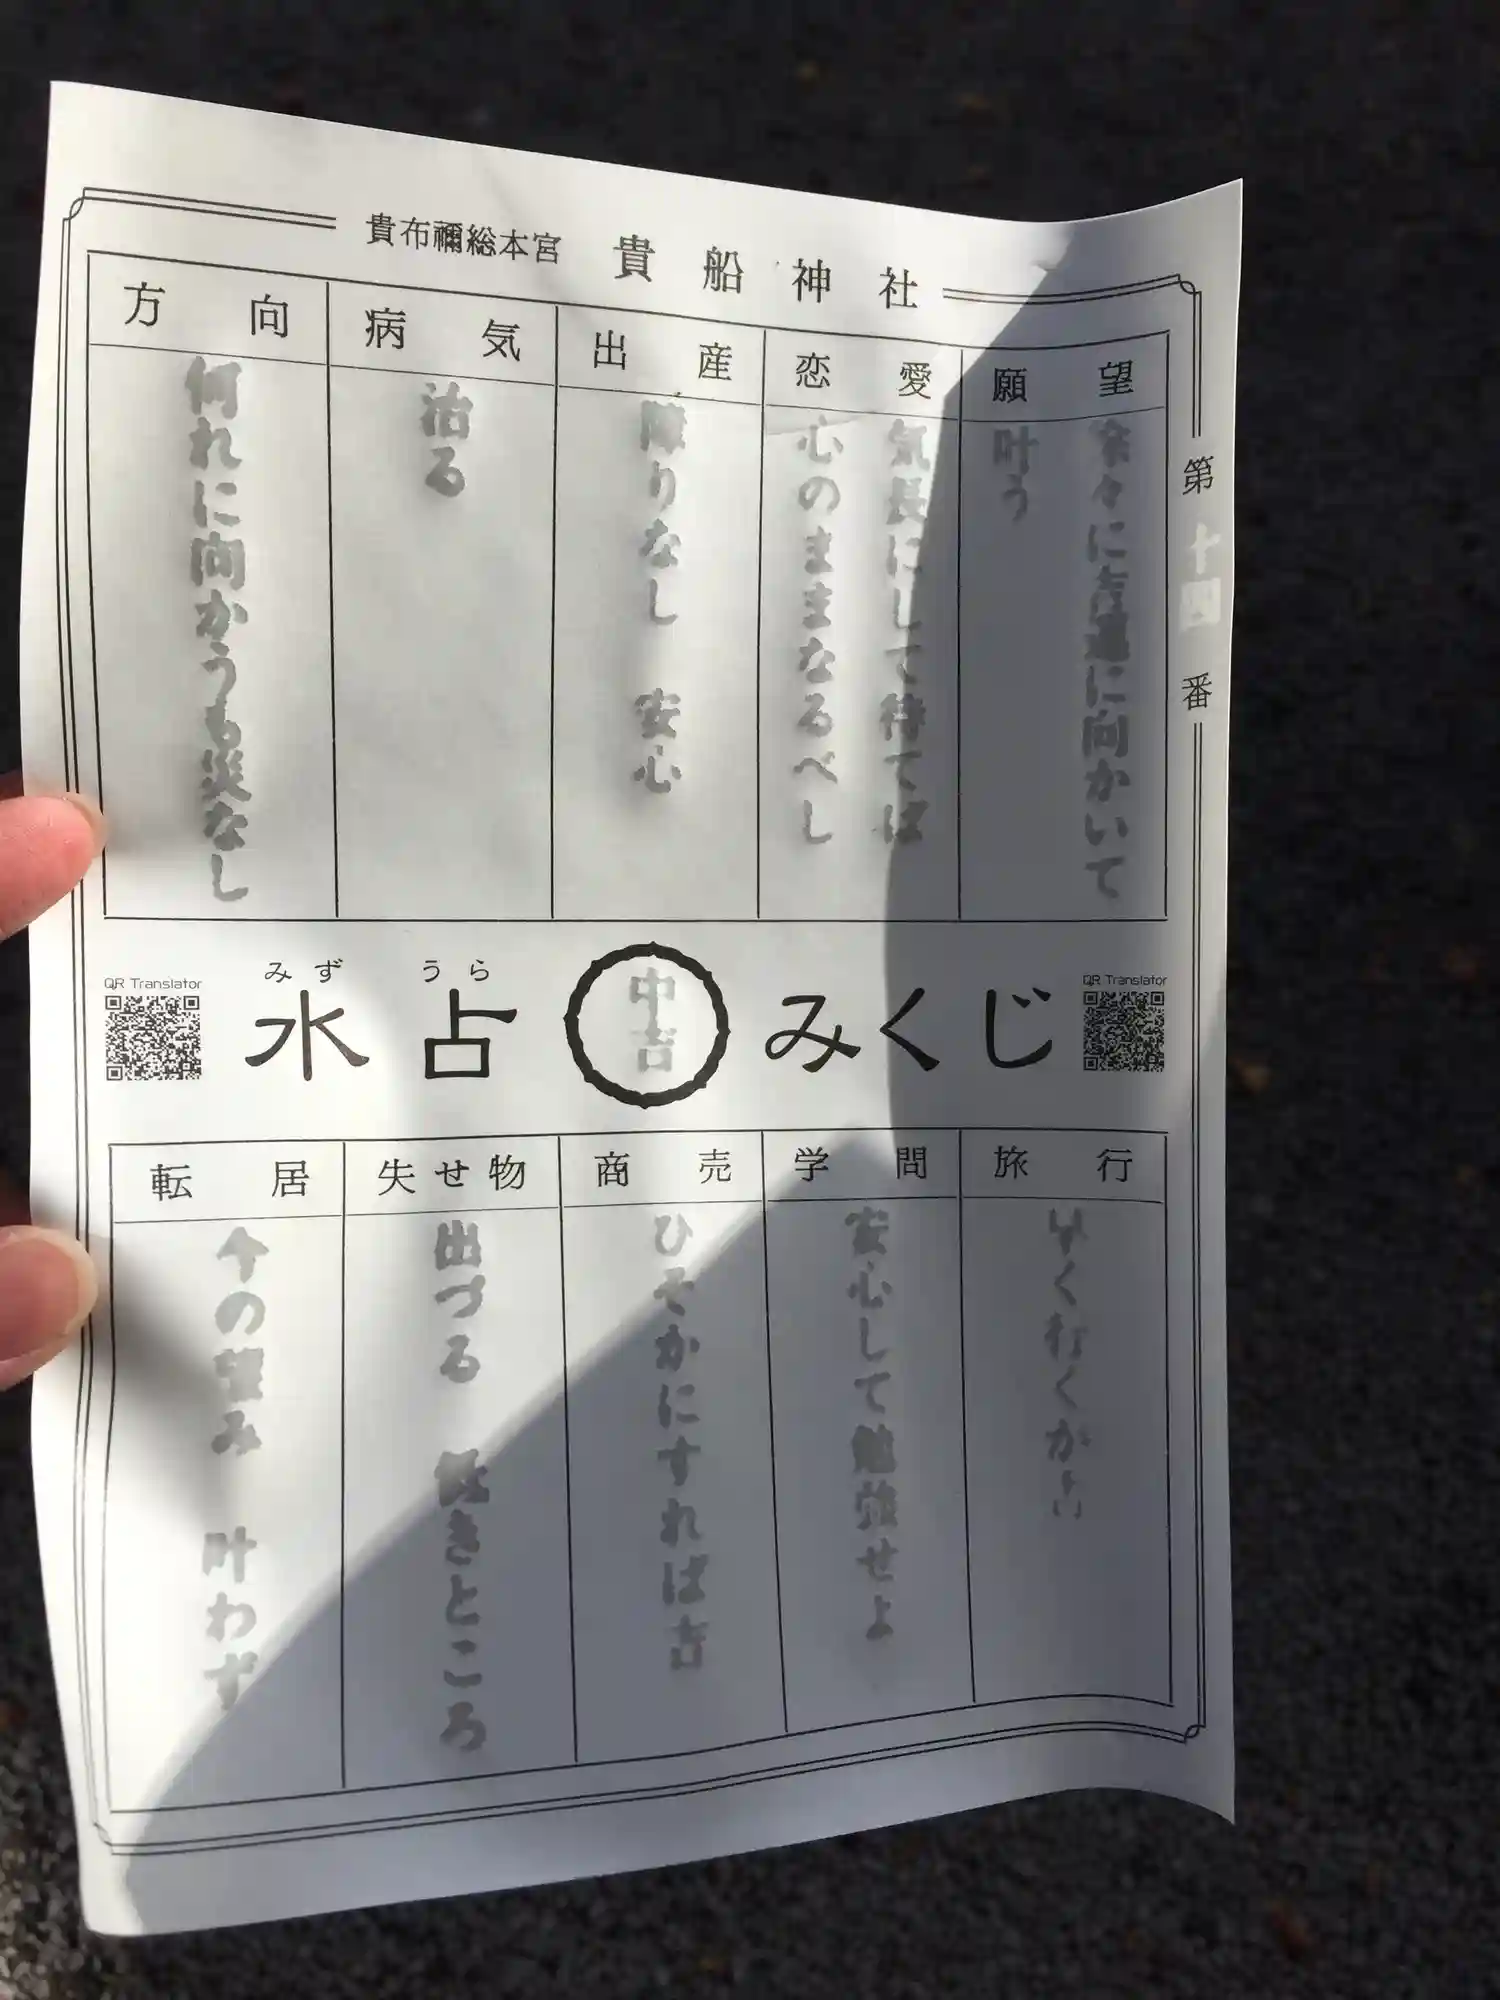 貴布禰総本宮 貴船神社
第十四番
願望
余々に吉運に向かいて
叶う
恋愛
気長にして待てば
心のままなるべし
出産
障りなし 安心
病気
治る
方向
何れに向かうも災なし
QR Translator
みず うら
水占 中吉 みくじ
QR Translator
旅行
早く行くが吉
学問
安心して勉強せよ
商売
ひそかにすれば吉
失せ物
出づる 低きところ
転居
今の望み 叶わず